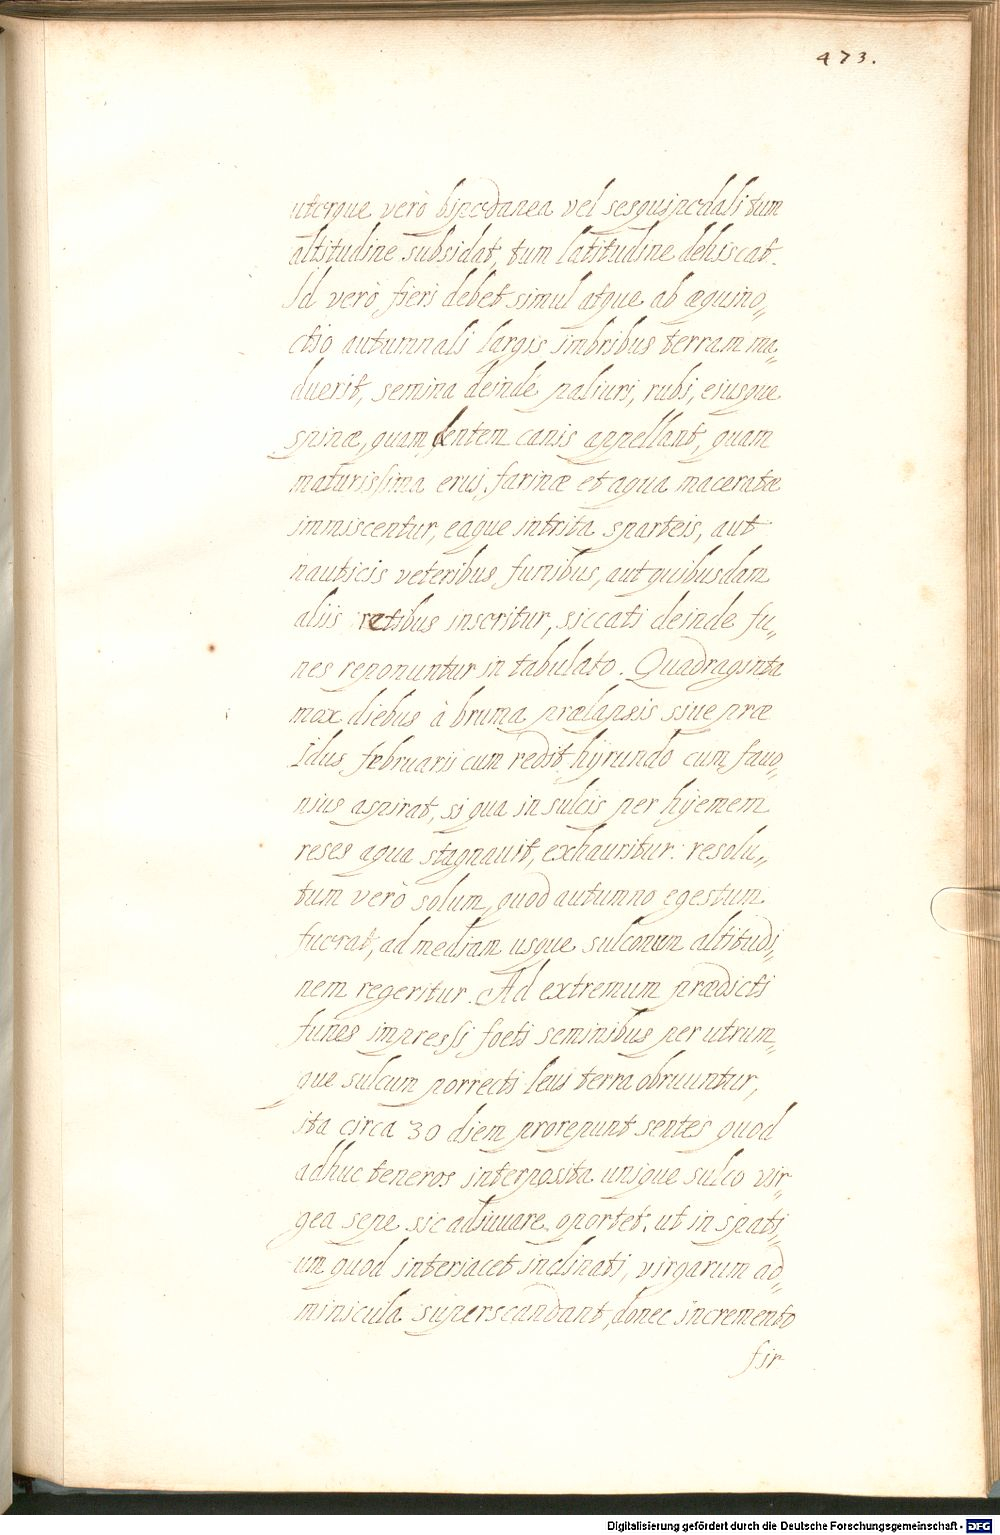 473.
uterque verò bipedanea vel sesquipedali tum
altitudine subsidat, tum latitudine dehiscat.
Id verò fieri debet simul atque ab æquino„
ctio autumnali largis imbribus terram ma„
duerit, semina deindè paliuri, rubi, eiusque
spinæ, quam sentem canis appellant, quam
maturissima erui farinæ et aqua maceratæ
immiscentur, eaque intrita sparteis, aut
nauticis veteribus funibus, aut quibusdam
aliis restibus inseritur, siccati deinde fu„
nes reponuntur in tabulato. Quadraginta
mox diebus à bruma prælapsis siue præ
Idus februarii cum redit hyrundo cum fauo„
nius aspirat, si qua in sulcis per hyemem
reses aqua stagnauit, exhauritur: resolu„
tum verò solum, quod autumno egestum
fuerat, ad mediam usque sulconum altitudi„
nem regeritur. Ad extremum prædicti
funes impressi foeti seminibus per utrum„
que sulcum porrecti leui terra obruuntur,
ita circa 30 diem prorepunt sentes quod
adhuc teneros interposita unique sulco vir„
gea sepe sic adiuuare oportet, ut in spati„
um quod interiacet inclinati, virgarum ad„
minicula superscandant, donec incremento
fir
Digitalisierung gefördert durch die Deutsche Forschungsgemeinschaft - DFG